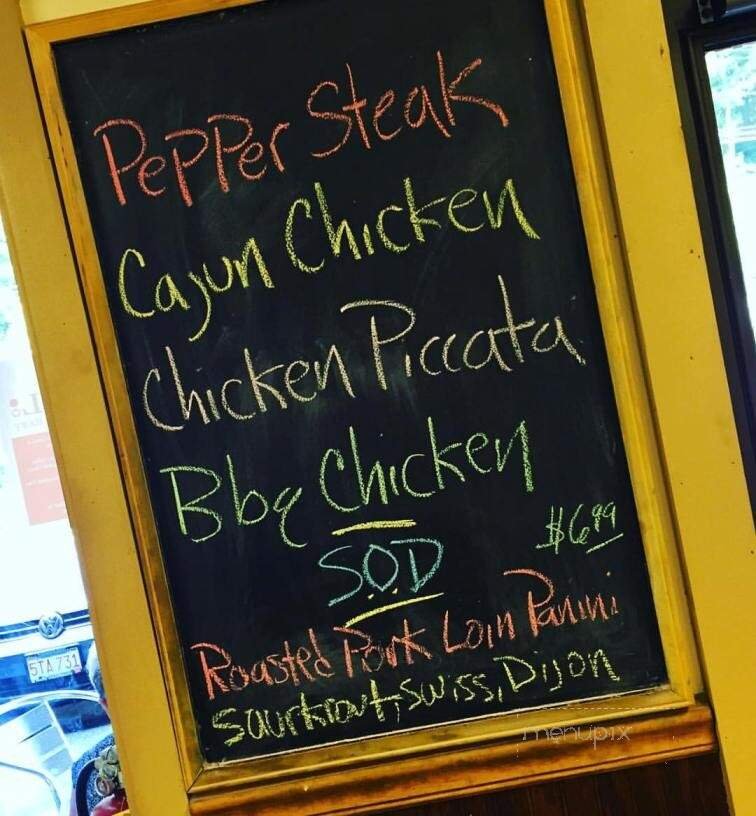 PepPer Steak
Cajun Chicken
Chicken Piccata
Bbq Chicken
$6.99
S.O.D
Roasted Pork Loin Panini
Saurkraut, Swiss, Dijon
5TA 731
menupix